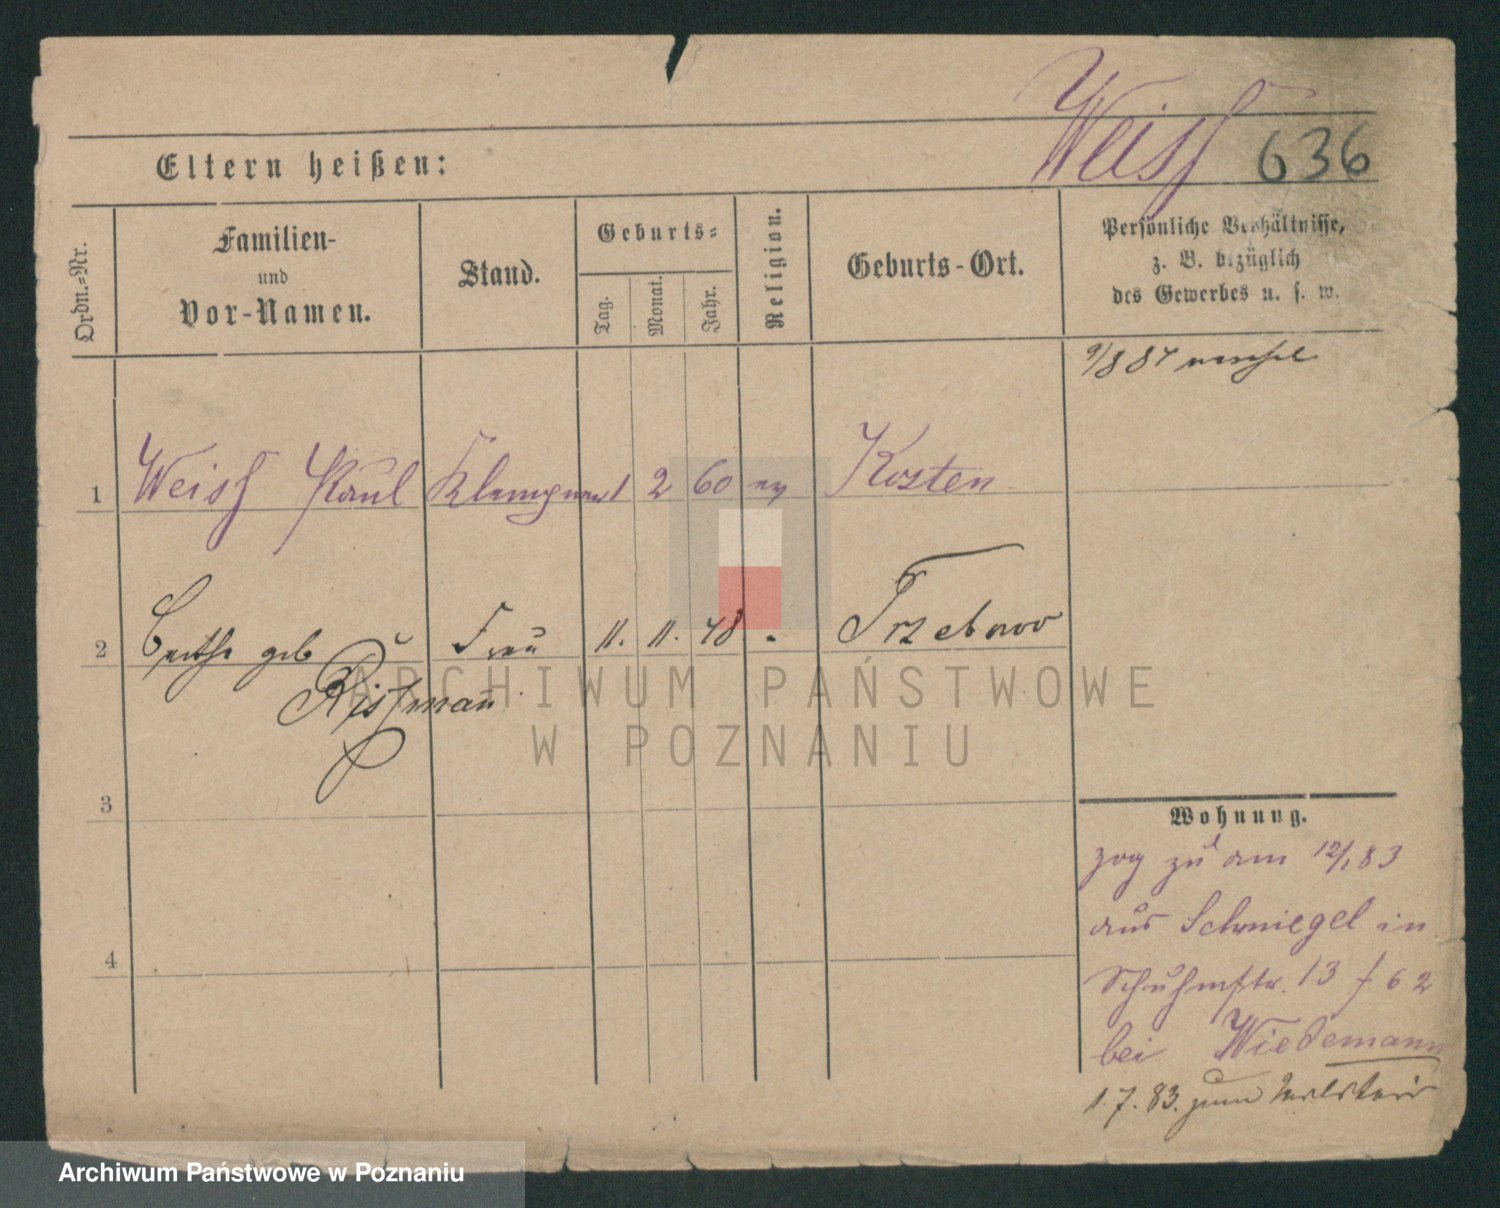 Weiss 636
Eltern heißen:
Ordn.-Nr.
Familien-
und
Vor-Namen.
Stand.
Geburts-
Tag. Monat. Jahr.
Religion.
Geburts-Ort.
Persönliche Verhältnisse,
z. B. bezüglich
des Gewerbes u. s. w.
9/8 87
1 Weiss Paul Klempner 1 2 60 ev Kosten
2 Bertha geb Frau 11. 11. 48 " Trzebowo
Rissmann
3
4
Wohnung.
zog zu am 12/1 83
aus Schmiegel in
Schuhmstr. 13 f 62
bei Wiedemann
1.7.83. zum
ARCHIWUM PAŃSTWOWE
W POZNANIU
Archiwum Państwowe w Poznaniu